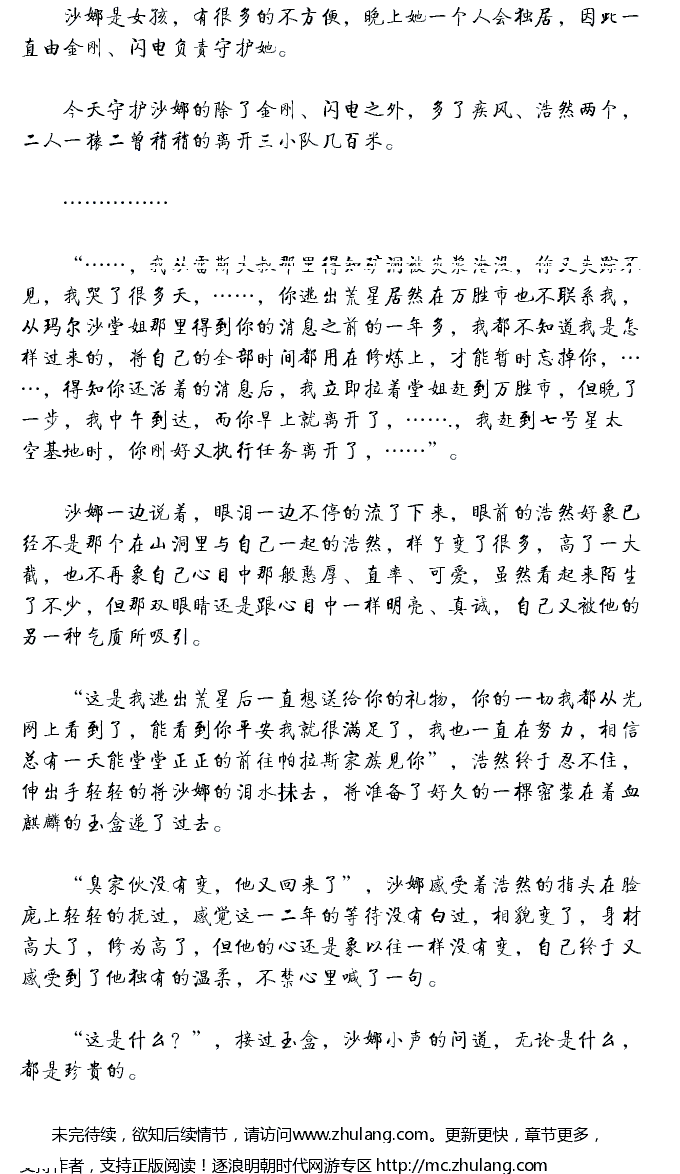 沙娜是女孩，有很多的不方便，晚上她一个人会独居，因此一
直由金刚、闪电负责守护她。
今天守护沙娜的除了金刚、闪电之外，多了疾风、浩然两个，
二人一猿二兽稍稍的离开三小队几百米。
……………
“……，我从雷斯大叔那里得知矿洞被炎浆淹没，你又失踪不
见，我哭了很多天，……，你逃出荒星居然在万胜市也不联系我，
从玛尔沙堂姐那里得到你的消息之前的一年多，我都不知道我是怎
样过来的，将自己的全部时间都用在修炼上，才能暂时忘掉你，…
…，得知你还活着的消息后，我立即拉着堂姐赶到万胜市，但晚了
一步，我中午到达，而你早上就离开了，…….，我赶到七号星太
空基地时，你刚好又执行任务离开了，……”。
沙娜一边说着，眼泪一边不停的流了下来，眼前的浩然好象已
经不是那个在山洞里与自己一起的浩然，样子变了很多，高了一大
截，也不再象自己心目中那般憨厚、直率、可爱，虽然看起来陌生
了不少，但那双眼睛还是跟心目中一样明亮、真诚，自己又被他的
另一种气质所吸引。
“这是我逃出荒星后一直想送给你的礼物，你的一切我都从光
网上看到了，能看到你平安我就很满足了，我也一直在努力，相信
总有一天能堂堂正正的前往帕拉斯家族见你”，浩然终于忍不住，
伸出手轻轻的将沙娜的泪水抹去，将准备了好久的一棵密装在着血
麒麟的玉盒递了过去。
“臭家伙没有变，他又回来了”，沙娜感受着浩然的指头在脸
庞上轻轻的抚过，感觉这一二年的等待没有白过，相貌变了，身材
高大了，修为高了，但他的心还是象以往一样没有变，自己终于又
感受到了他独有的温柔，不禁心里喊了一句。
“这是什么？”，接过玉盒，沙娜小声的问道，无论是什么，
都是珍贵的。
未完待续，欲知后续情节，请访问www.zhulang.com。更新更快，章节更多，
支持作者，支持正版阅读！逐浪明朝时代网游专区 http://mc.zhulang.com